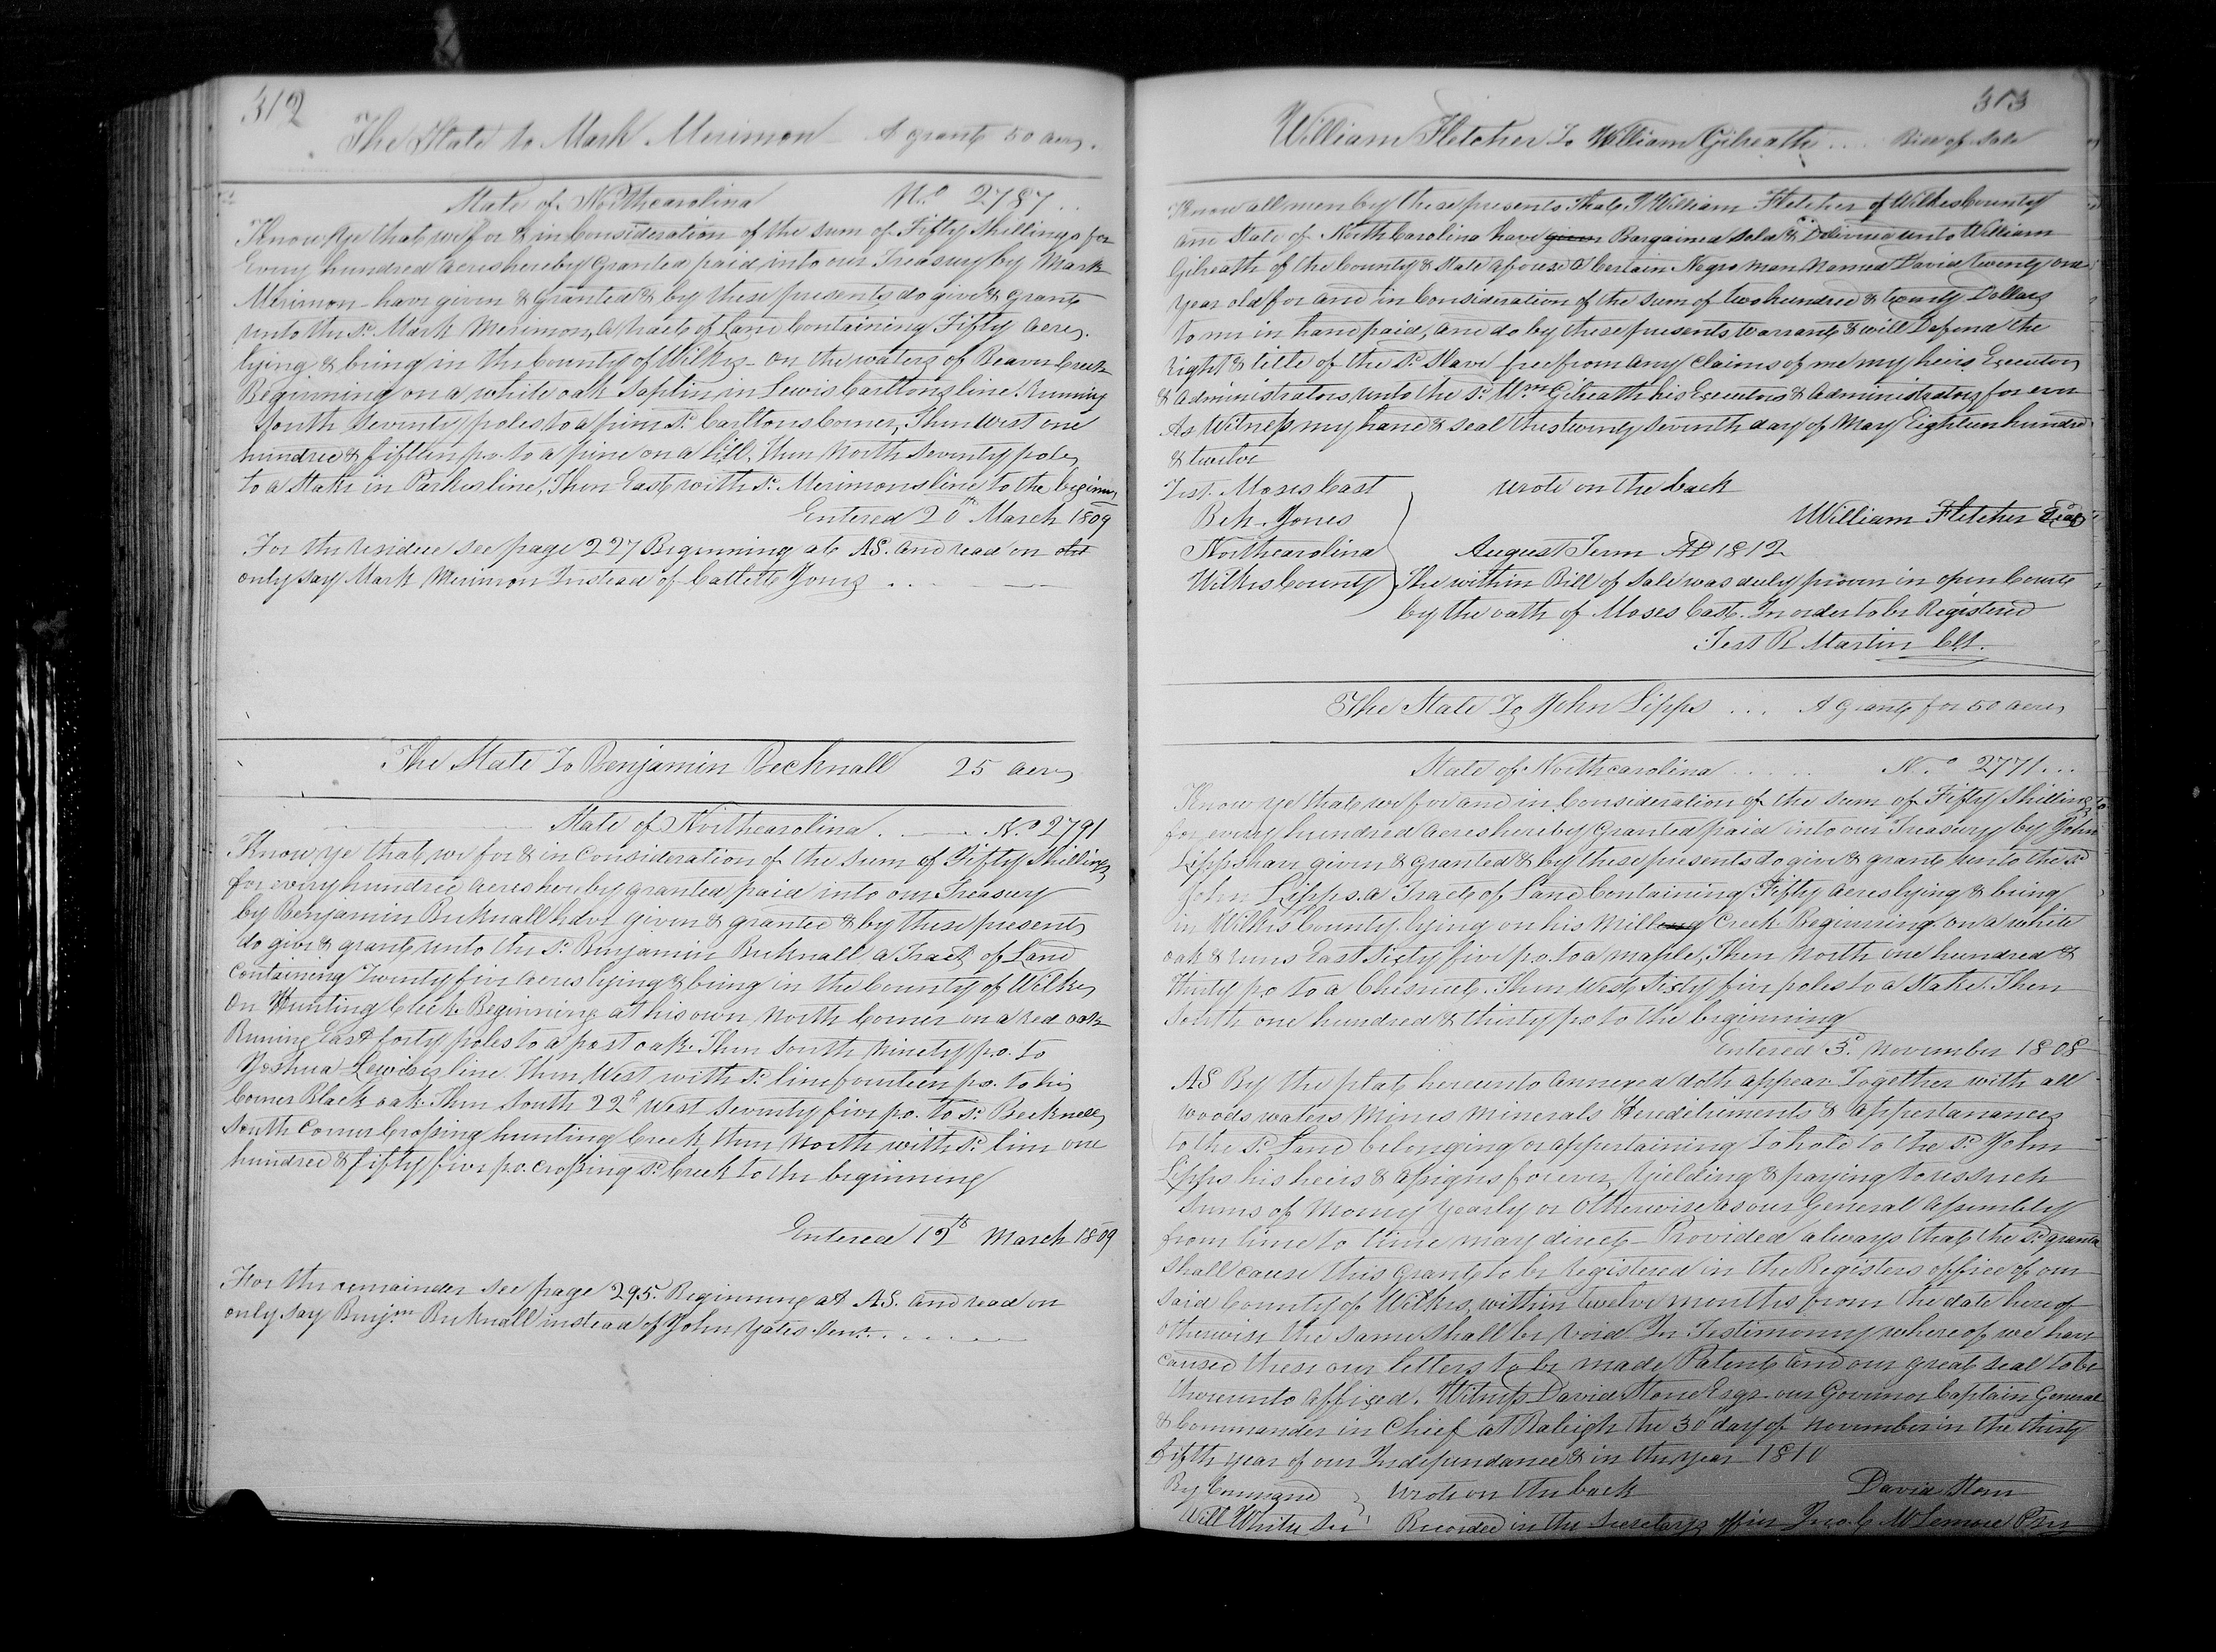 312
The State to Mark Merimon A grant 50 acres.
State of Northcarolina No 2787
Know Ye that we for & in Consideration of the sum of Fifty Shillings for
Every hundred acres hereby Granted paid into our Treasury by Mark
Merimon have given & Granted & by these presents do give & grant
unto the sd. Mark Merimon, a tract of Land Containing Fifty Acres.
lying & being in the County of Wilkes on the waters of Beaver Creek
Beginning on a white oak Saplin in Lewis Carltons line Running
South Seventy poles to a pine sd. Carltons Corner, Then West one
hundred & fifteen po. to a pine on a hill, Then North seventy poles
to a Stake in Parkes line, Then East with sd. Merimons line to the beginng
Entered 20th March 1809
For the residue see page 227 Beginning at AS. and read on
only say Mark Merimon Instead of Catlett Jones
The State To Benjamin Becknall 25 acres
State of Northcarolina. No 2791
Know ye that we for & in Consideration of the sum of Fifty Shillings
for every hundred acres hereby granted paid into our Treasury
by Benjamin Bucknall have given & granted & by these presents
do give & grant unto the sd. Benjamin Bucknall a Tract of Land
Containing Twenty five acres lying & being in the County of Wilkes
On Hunting Creek Beginning at his own North Corner on a red oak
Runing East forty poles to a post oak. Then South Ninety po. to
Joshua Lewises line Then West with sd. line fourteen po. to his
Corner Black oak. Then South 22d West Seventy five po. to sd. Becknells
South Corner Crossing hunting Creek then North with sd. line one
hundred & fifty five po. crossing sd. Creek to the beginning
Entered 12th March 1809
For the remainder see page 295. Beginning at AS. and read on
only say Benjmn Bucknall instead of John Yates Senr.
313
William Fletcher To William Gilreath Bill of Sale
Know all men by these presents That I William Fletcher of Wilkes County
and State of North Carolina have given Bargained Sold & Delivered unto William
Gilreath of the County & State aforesd a Certain Negro man Named David twenty one
year old for and in Consideration of the sum of two hundred & twenty Dollars
to me in hand paid, and do by these presents warrant & will Defend the
right & title of the sd. Slave free from any Claims of me my heirs Executors
& Administrators unto the sd. Wm Gilreath his Executors & Administrators for ever
As Witness my hand & seal this twenty seventh day of May Eighteen hundred
& twelve
Test. Moses Cast wrote on the back
Beh. Jones
William Fletcher Seal
Northcarolina August Term AD 1812
Wilkes County The within Bill of Sale was duly proven in open Court
by the oath of Moses Cast. In order to be Registered
Test R Martin Clk.
The State To John Lipps A Grant for 50 acres
State of Northcarolina No 2771
Know ye that we for and in Consideration of the sum of Fifty Shillings
for every hundred acres hereby Granted paid into our Treasury by John
Lipps have given & granted & by these presents do give & grant unto the sd
John Lipps a Tract of Land Containing Fifty acres lying & being
in Wilkes County lying on his Mill Creek Beginning on a white
oak & runs East Sixty five po. to a maple, Then North one hundred &
thirty po to a Chesnut. Then West Sixty five poles to a Stake. Then
South one hundred & thirty po to the beginning
Entered 3d. November 1808
AS By the plat hereunto annexed doth appear. Together with all
woods waters Mines Minerals Hereditiments & appertanances
to the sd. Land belonging or appertaining To hold to the sd John
Lipps his heirs & assigns forever, Yielding & paying to us such
sums of money yearly or Otherwise as our General Assembly
from time to time may direct. Provided always that the sd grantee
Shall cause this Grant to be Registered in the Registers office of our
Said County of Wilkes, within twelve months from the date hereof
otherwise the same shall be void In Testimony whereof we have
caused these our letters to be made Patent and our great seal to be
thereunto affixed. Witness David Stone Esqr. our Governor Captain General
& Commander in Chief at Raleigh the 30th day of November in the thirty
Fifth year of our Independance & in the year 1810
By Command wrote on the back David Stone
Will White Sec Recorded in the Secretarys office Jno. C McLemore